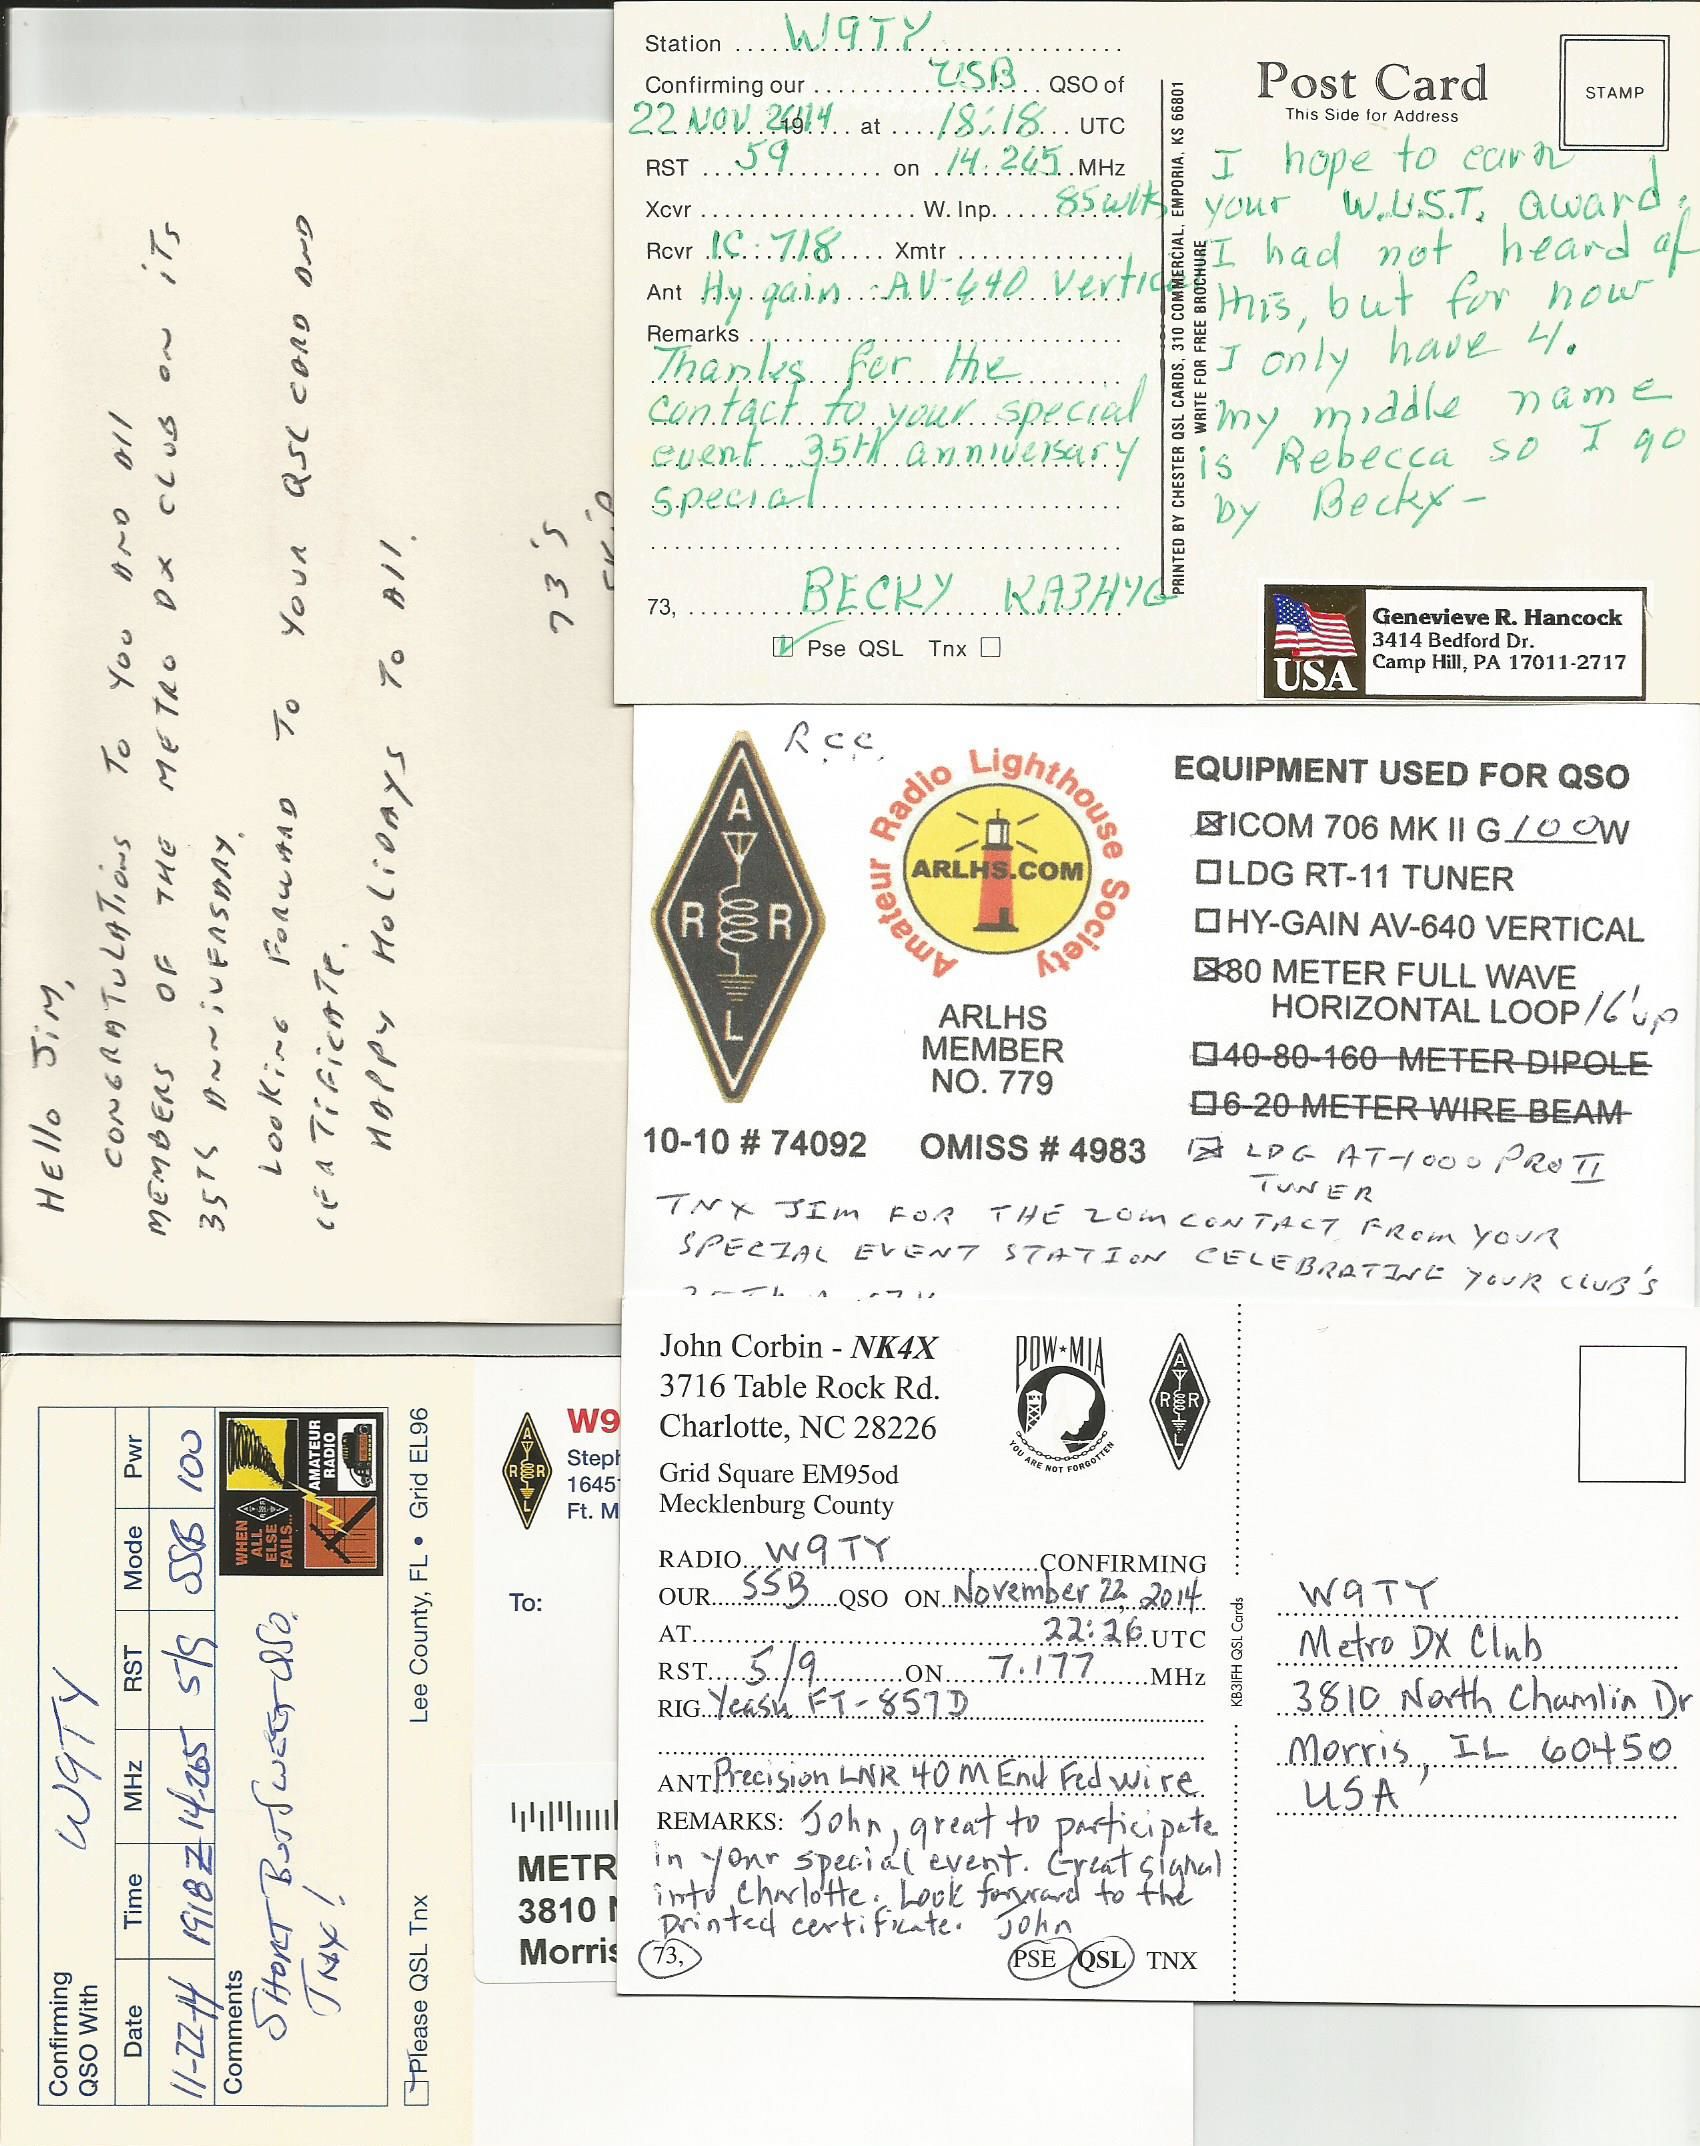 Hello Jim,
CONGRATULATIONS TO YOU AND All
MEMBERS OF THE METRO DX CLUB ON iTs
35Th ANNIVERSARY.
LOOKING FORWARD TO YOUR QSL CARD AND
CERTIFICATE.
HAPPY HOLIDAYS TO All.
73's
Station W9TY
Confirming our USB QSO of
22 NOV 2014 19 at 18:18 UTC
RST 59 on 14.265 MHz
Xcvr W. Inp. 85 wtts
Rcvr IC-718 Xmtr
Ant Hy gain AV-640 Vertical
Remarks
Thanks for the
contact to your special
event 35th anniversary
special
73, BECKY KA3HYG
Pse QSL Tnx
PRINTED BY CHESTER QSL CARDS, 310 COMMERCIAL, EMPORIA, KS 66801
WRITE FOR FREE BROCHURE
Post Card
This Side for Address
STAMP
I hope to earn
your W.U.S.T. award.
I had not heard of
this, but for now
I only have 4.
my middle name
is Rebecca so I go
by Becky -
USA
Genevieve R. Hancock
3414 Bedford Dr.
Camp Hill, PA 17011-2717
RCC
A
R R
L
Amateur Radio Lighthouse Society
ARLHS.COM
ARLHS
MEMBER
NO. 779
10-10 # 74092 OMISS # 4983
EQUIPMENT USED FOR QSO
ICOM 706 MK II G 100W
LDG RT-11 TUNER
HY-GAIN AV-640 VERTICAL
80 METER FULL WAVE
HORIZONTAL LOOP 16' up
40-80-160 METER DIPOLE
6-20 METER WIRE BEAM
LDG AT-1000 PRO II
TUNER
TNX JIM FOR THE 20m CONTACT FROM YOUR
SPECIAL EVENT STATION CELEBRATING YOUR CLUB'S
Confirming
QSO With W9TY
Date Time MHz RST Mode Pwr
11-22-14 1918Z 14.265 5/9 SSB 100
Comments
SHORT BUT SWEET QSO.
TNX!
WHEN
ALL
ELSE
FAILS...
AMATEUR
RADIO
Please QSL Tnx Lee County, FL • Grid EL96
A
R R
L
W9
Steph
1645
Ft. M
To:
METR
3810 N
Morris
John Corbin - NK4X
3716 Table Rock Rd.
Charlotte, NC 28226
Grid Square EM95od
Mecklenburg County
POW★MIA
YOU ARE NOT FORGOTTEN
A
R R
L
RADIO W9TY CONFIRMING
OUR SSB QSO ON November 22, 2014
AT 22:26 UTC
RST 5/9 ON 7.177 MHz
RIG Yeasu FT-857D
ANT Precision LNR 40 M End Fed wire
REMARKS: John, great to participate
in your special event. Great signal
into Charlotte. Look forward to the
printed certificate. John
73, PSE QSL TNX
KB3IFH QSL Cards
W9TY
Metro DX Club
3810 North Chamlin Dr
Morris, IL 60450
USA